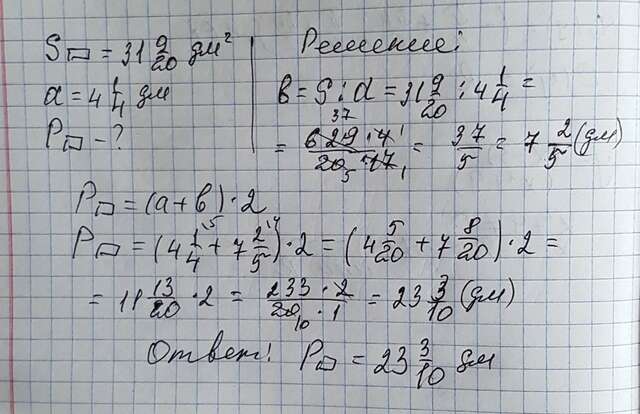 S▭ = 31 9/20 дм²
a = 4 1/4 дм
P▭ - ?
Решение:
в = S : a = 31 9/20 : 4 1/4 =
= 629 · 4 / 20 · 17 = 37/5 = 7 2/5 (дм)
37 1
5 1
P▭ = (a + в) · 2
P▭ = (4 1/4 + 7 2/5) · 2 = (4 5/20 + 7 8/20) · 2 =
\5 \4
= 11 13/20 · 2 = 233 · 2 / 20 · 1 = 23 3/10 (дм)
10
Ответ: P▭ = 23 3/10 дм